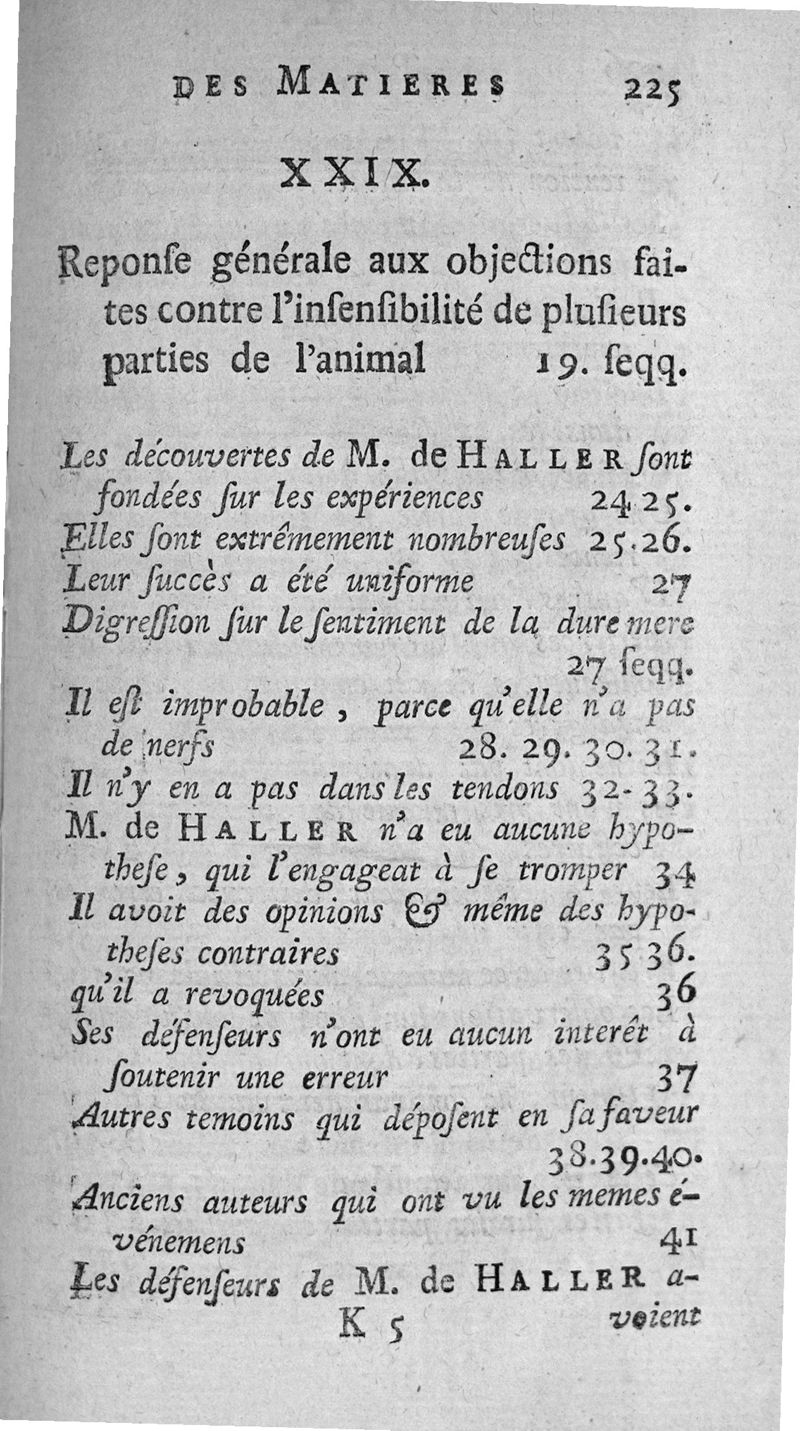 DES MATIERES 225
XXIX.
Reponſe générale aux objections fai-
tes contre l'inſenſibilité de pluſieurs
parties de l'animal 19. ſeqq.
Les découvertes de M. de HALLER ſont
fondées ſur les expériences 24 25.
Elles ſont extrêmement nombreuſes 25.26.
Leur ſuccès a été uniforme 27
Digreſſion ſur le ſentiment de la dure mere
27 ſeqq.
Il eſt improbable, parce qu'elle n'a pas
de nerfs 28. 29. 30. 31.
Il n'y en a pas dans les tendons 32-33.
M. de HALLER n'a eu aucune hypo-
theſe, qui l'engageat à ſe tromper 34
Il avoit des opinions & même des hypo-
theſes contraires 35 36.
qu'il a revoquées 36
Ses défenſeurs n'ont eu aucun interêt à
ſoutenir une erreur 37
Autres temoins qui dépoſent en ſa faveur
38.39.40.
Anciens auteurs qui ont vu les memes é-
vénemens 41
Les défenſeurs de M. de HALLER a-
K 5 voient